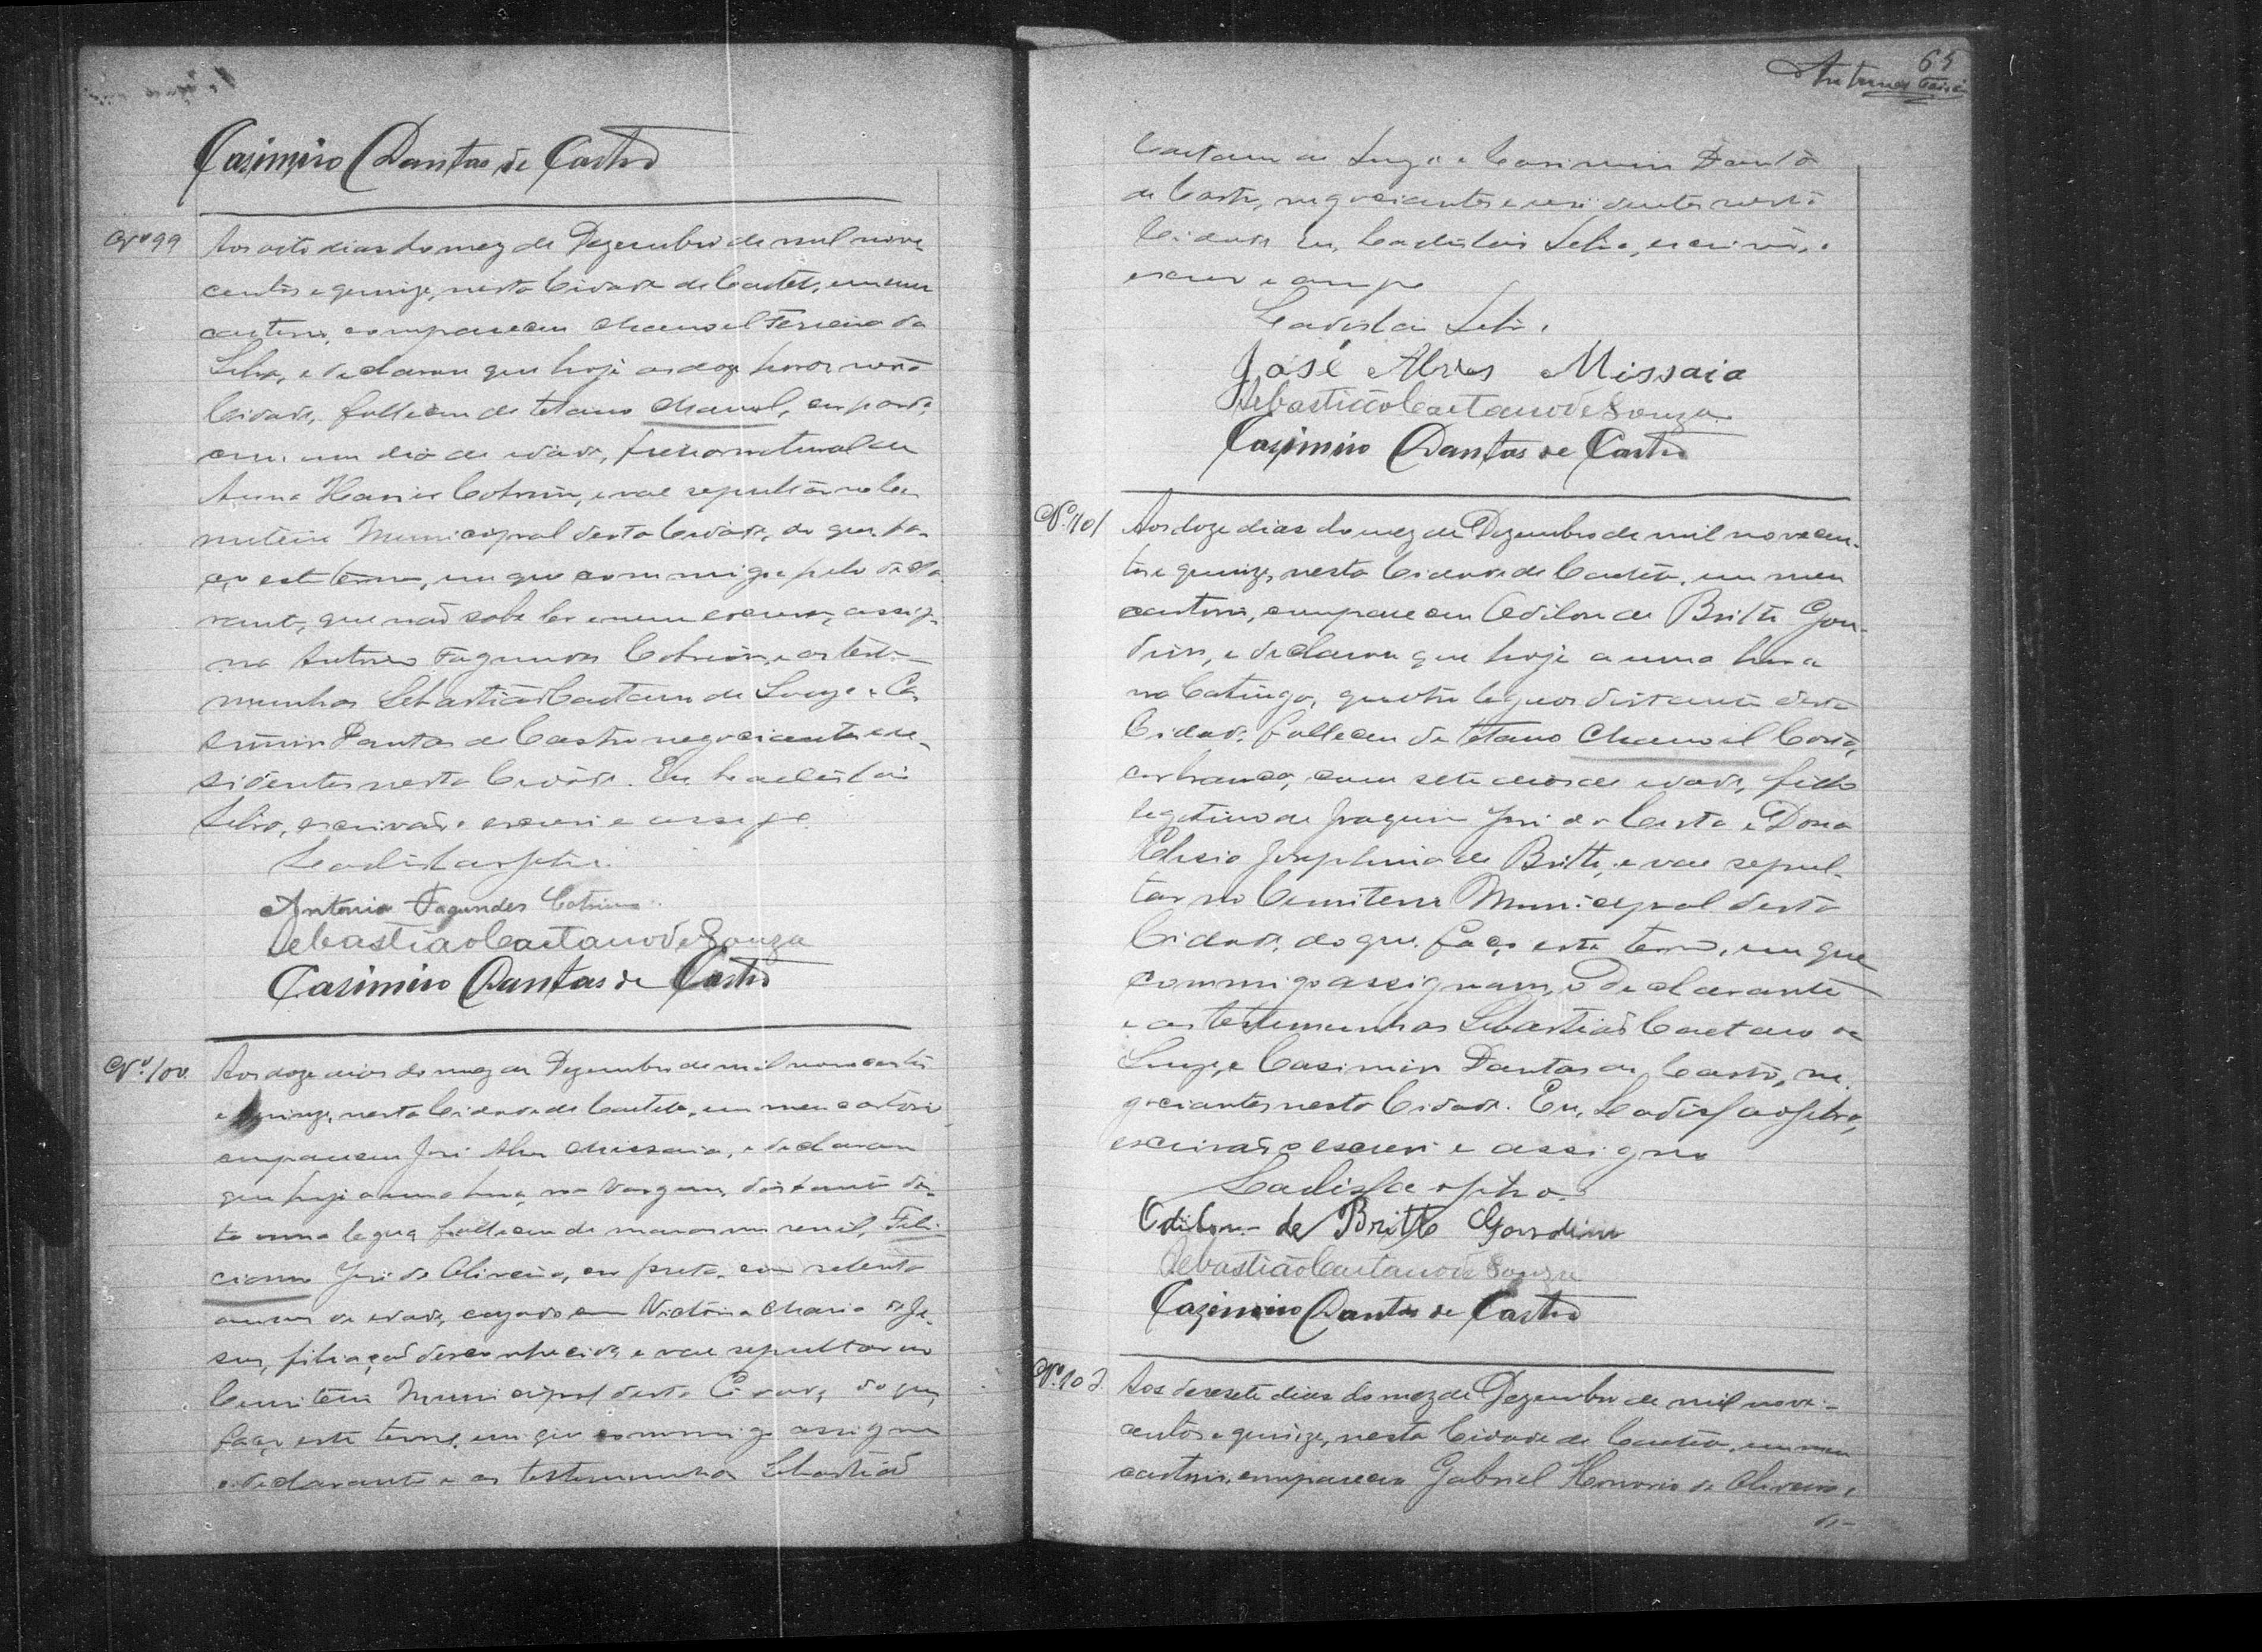 Casimiro Dantas de Castro
Nº 99
Aos oito dias do mez de Dezembro de mil nove
centos e quinze, nesta Cidade de Caeteté, em meu
cartorio, compareceu Manoel Ferreira da
Silva, e declarou que hoje as doze horas nesta
Cidade, falleceu de tetano Manoel, cor parda,
com um dia de idade, filho natural de
Anna Maria Cotrim, e vae sepultar no Ce
miterio Municipal desta Cidade, do que fa-
ço este termo, em que commigo pelo decla
rante, que não sabe ler e nem escrever, assig-
na Antonio Fagundes Cotrim, e as teste
munhas Sebastião Caetano de Souza e Ca
simiro Dantas de Castro negociantes e re-
sidentes nesta Cidade. Eu, Ladislau
Silva, escrivão o escrevi e assigno
Ladislau Silva
Antonio Fagundes Cotrim
Sebastião Caetano de Souza
Casimiro Dantas de Castro
Nº 100
Aos doze dias do mez de Dezembro de mil novecentos
e quinze, nesta Cidade de Caeteté, em meu cartorio
compareceu José Alves Missaia, e declarou
que hoje a uma hora, na Vargem, distante des-
ta uma legua falleceu de marasmo senil, Feli-
ciano José de Oliveira, cor preta, com setenta
annos de idade, cazado com Victoria Maria de Je-
sus, filiação desconhecida e vae sepultar no
Cemiterio Municipal desta Cidade, do que,
faço este termo, em que commigo assigna
o declarante e as testemunhas Sebastião
65
Caetano de Souza e Casimiro Dantas
de Castro, negociantes e residentes nesta
Cidade Eu, Ladislau Silva, escrivão, o
escrevi e assigno
Ladislau Silva
José Alves Missaia
Sebastião Caetano de Souza
Casimiro Dantas de Castro
Nº 101
Aos doze dias do mez de Dezembro de mil novecen-
tos e quinze, nesta Cidade de Caeteté, em meu
cartorio, compareceu Odilon de Britto Gon-
dim, e declarou que hoje a uma hora
na Catinga, quatro leguas distante desta
Cidade falleceu de tetano Manoel Costa,
cor branca, com sete dias de idade, filho
legitimo de Joaquim José da Costa e Dona
Elisia Josephina de Britto, e vae sepul-
tar no Cemiterio Municipal desta
Cidade, do que, faço este termo, em que
commigo assignam, o declarante
e as testemunhas Sebastião Caetano de
Souza, e Casimiro Dantas de Castro, ne-
gociantes nesta Cidade. Eu, Ladislau Silva,
escrivão o escrevi e assigno
Ladislau Silva
Odilon de Britto Gondim
Sebastião Caetano de Souza
Casimiro Dantas de Castro
Nº 102
Aos desesete dias do mez de Dezembro de mil nove-
centos e quinze, nesta Cidade de Caeteté, em meu
cartorio, compareceu Gabriel Honorio de Oliveira,